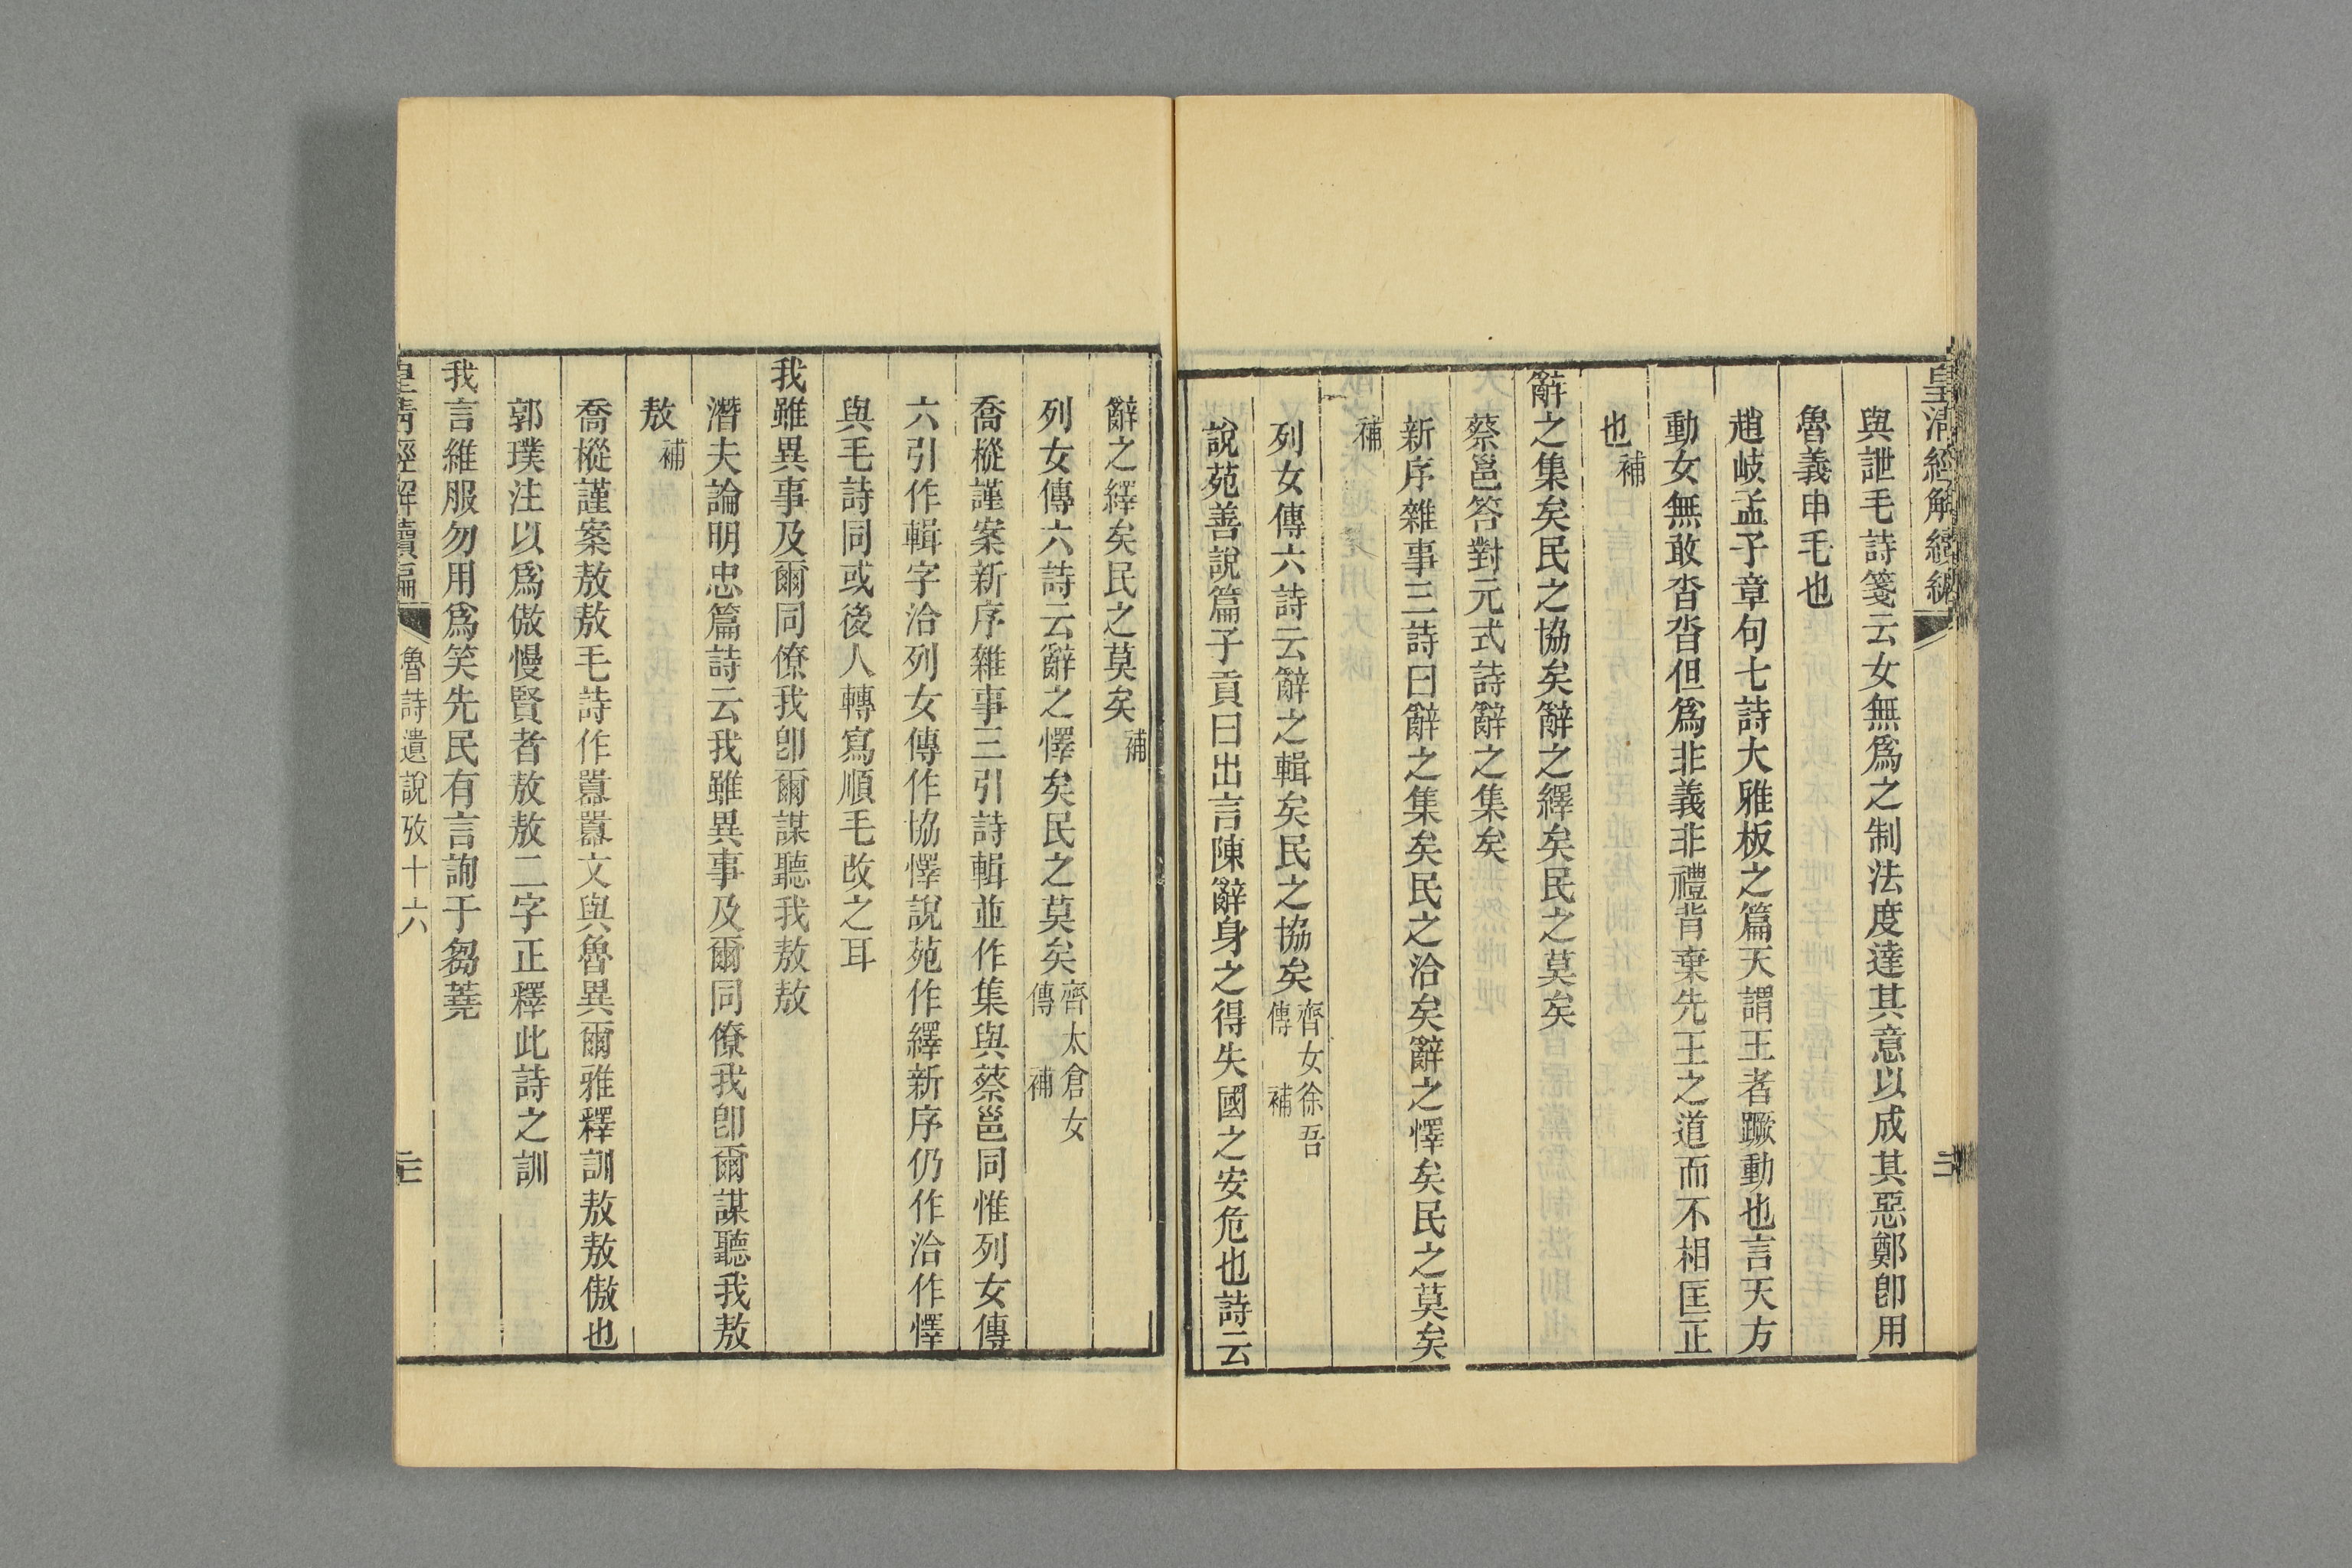 皇清經解續編
與詍毛詩箋云女無爲之制法度達其意以成其惡鄭卽用
魯義申毛也
趙岐孟子章句七詩大雅板之篇天謂王者蹶動也言天方
動女無敢沓沓但爲非義非禮背棄先王之道而不相匡正
也補
辭之集矣民之協矣辭之繹矣民之莫矣
蔡邕答對元式詩辭之集矣
新序雜事三詩曰辭之集矣民之洽矣辭之懌矣民之莫矣
補
列女傳六詩云辭之輯矣民之協矣齊女徐吾傳補
說苑善說篇子貢曰出言陳辭身之得失國之安危也詩云
辭之繹矣民之莫矣補
列女傳六詩云辭之懌矣民之莫矣齊太倉女傳補
喬樅謹案新序雜事三引詩輯並作集與蔡邕同惟列女傳
六引作輯字洽列女傳作協懌說苑作繹新序仍作洽作懌
與毛詩同或後人轉寫順毛改之耳
我雖異事及爾同僚我卽爾謀聽我敖敖
潛夫論明忠篇詩云我雖異事及爾同僚我卽爾謀聽我敖
敖補
喬樅謹案敖敖毛詩作囂囂文與魯異爾雅釋訓敖敖傲也
郭璞注以爲傲慢賢者敖敖二字正釋此詩之訓
我言維服勿用爲笑先民有言詢于芻蕘
皇清經解續編 魯詩遺說攷十六